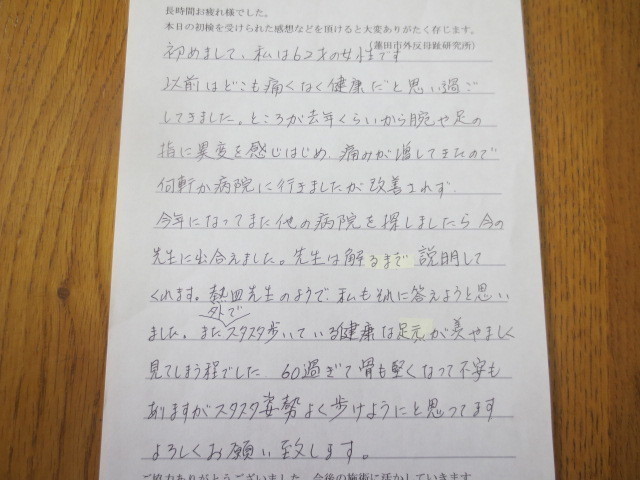 長時間お疲れ様でした。
本日の初検を受けられた感想などを頂けると大変ありがたく存じます。
(蓮田市外反母趾研究所)
初めまして、私は62才の女性です
以前はどこも痛くなく健康だと思い過ご
してきました。ところが去年くらいから腕や足の
指に異変を感じはじめ、痛みが増してきたので
何軒か病院に行きましたが改善されず、
今年になってまた他の病院を探しましたら今の
先生に出会えました。先生は解るまで説明して
くれます。熱血先生のようで、私もそれに答えようと思い
外で
ました。またスタスタ歩いている健康な足元が羨やましく
見てしまう程でした 60過ぎて骨も堅くなって不安も
ありますがスタスタ姿勢よく歩けようにと思ってます
よろしくお願い致します。
ご協力ありがとうございました。今後の施術に活かしていきます。